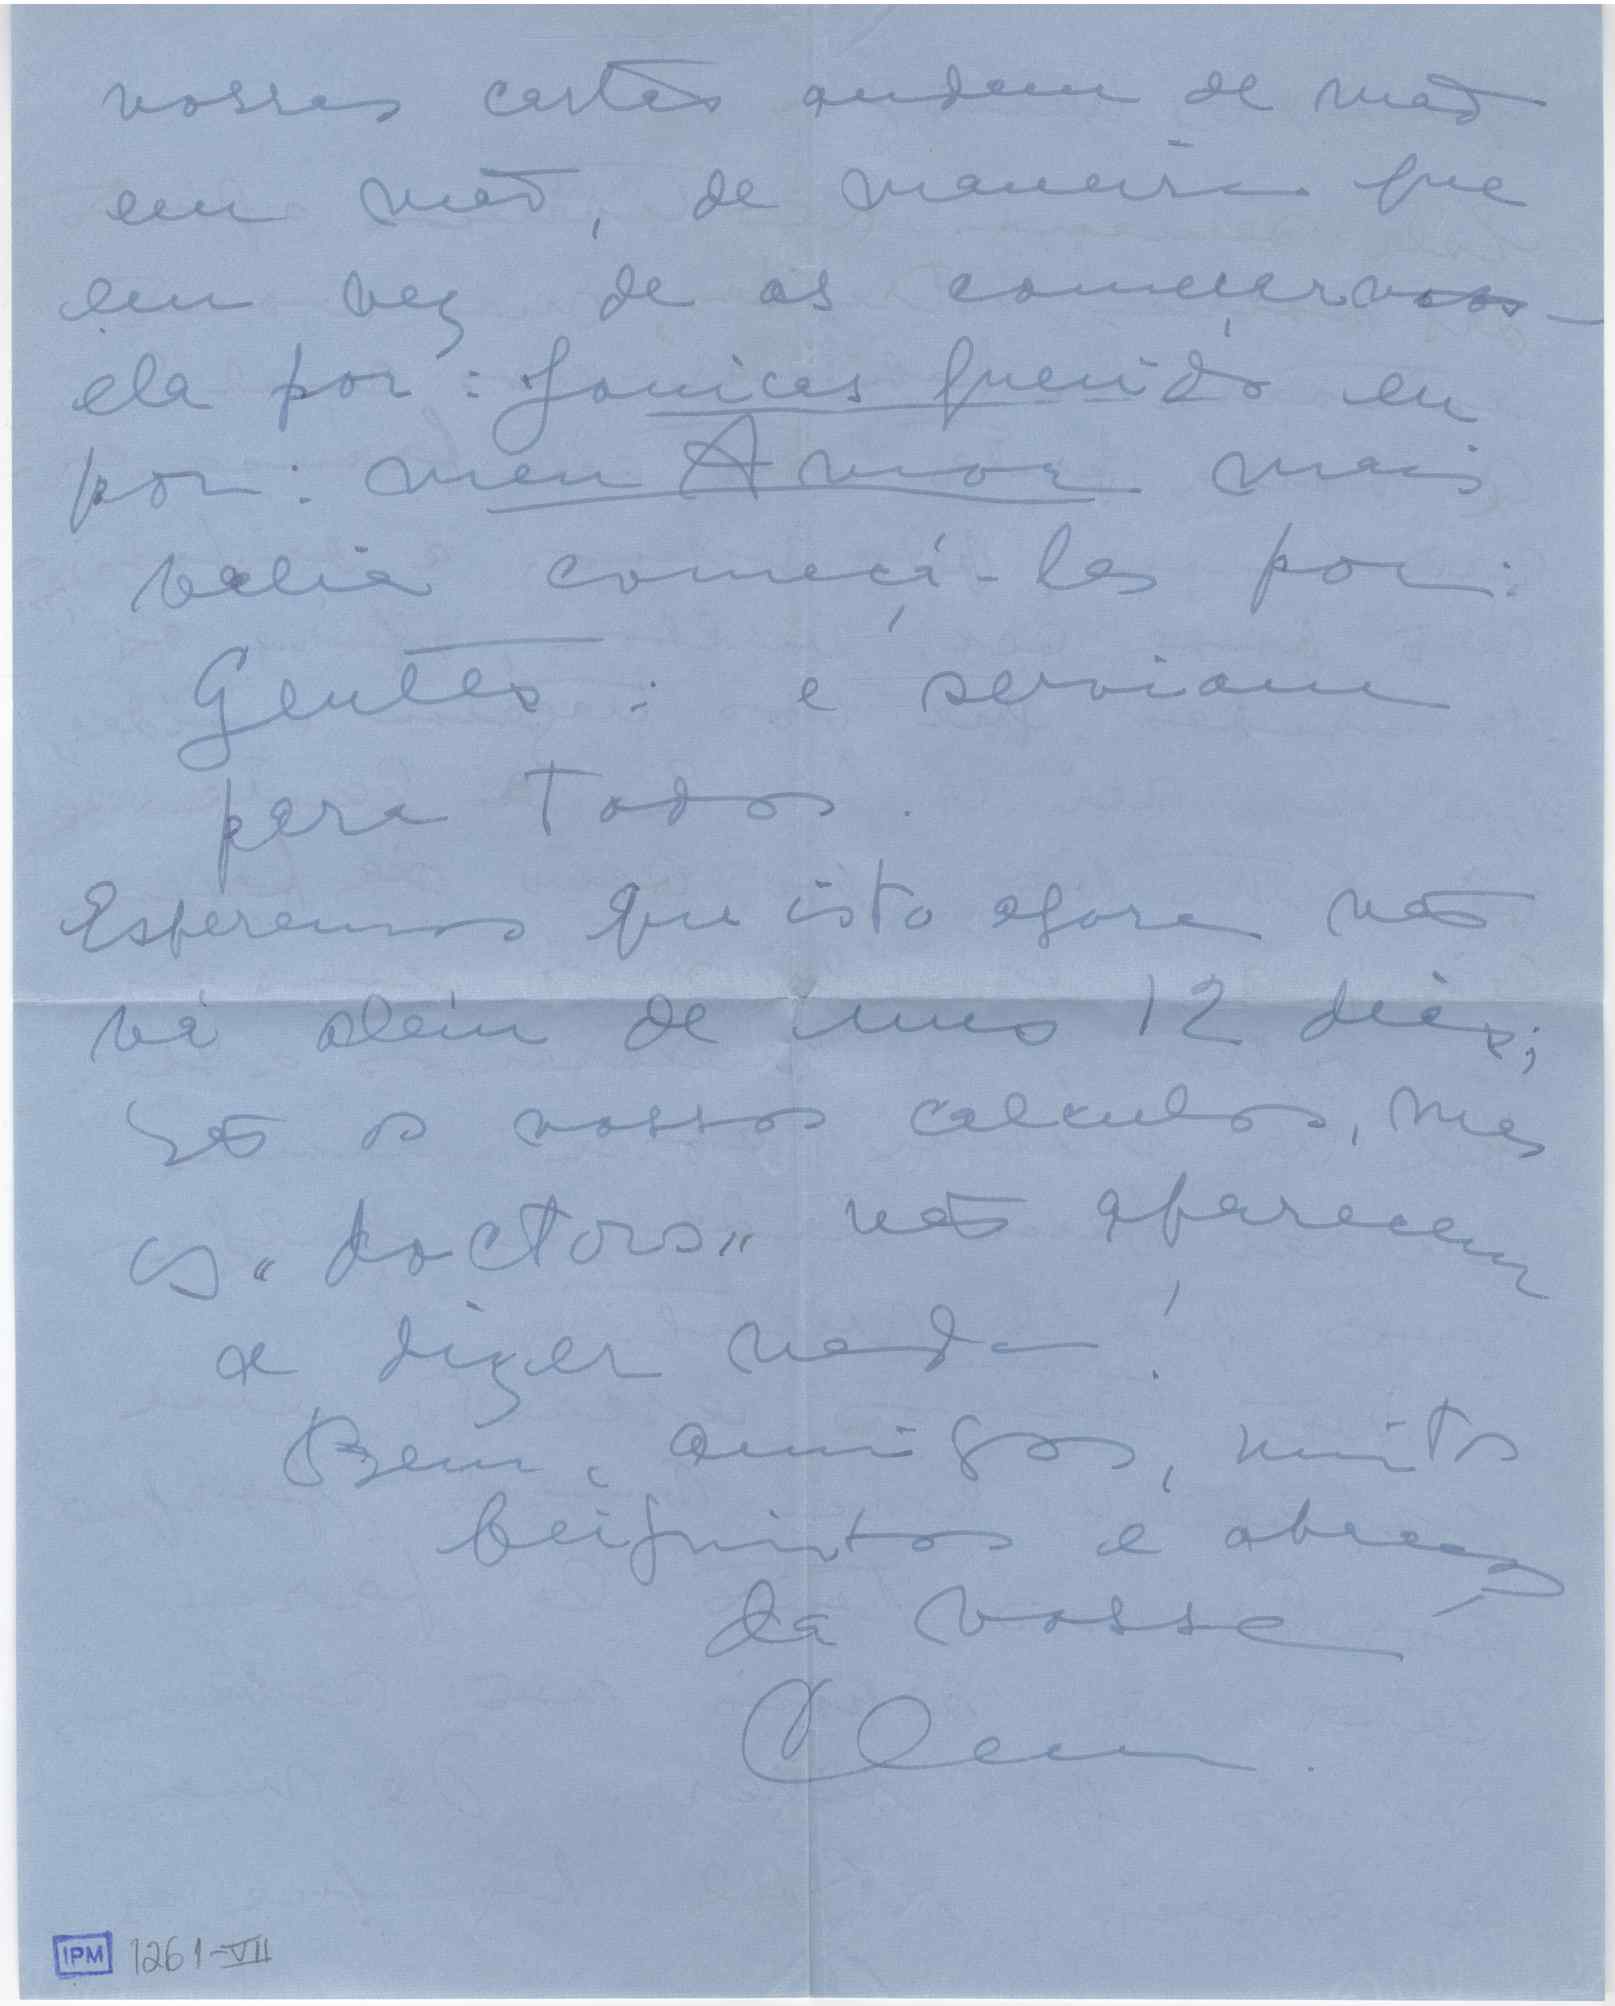 vossas cartas andam de mão
em mão, de maneira que
em vez de as começarmos
ela por: Janicas querido eu
por: meu Amor mais
valia começá-las por:
Gentes: e serviam
para todos.
Esperemos que isto agora não
vá além de uns 12 dias;
São os nossos calculos, mas
os "doctors" não aparecem
a dizer nada!
Bem, amigos, muitos
beijinhos e abraços
da vossa
Clem.
IPM 1261-VII